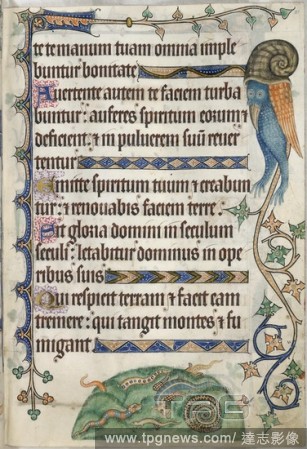 te te manum tuam omnia imple
buntur bonitate
Auertente autem te faciem turba
buntur: auferes spiritum eorum ⁊
deficient: ⁊ in puluerem suū reuer
tentur
Emitte spiritum tuum ⁊ creabun
tur: ⁊ renouabis faciem terre.
Sit gloria domini in seculum
seculi: letabitur dominus in ope
ribus suis
Qui respicit terram ⁊ facit eam
tremere: qui tangit montes ⁊ fu
migant
TPG
www.tpgnews.com/達志影像